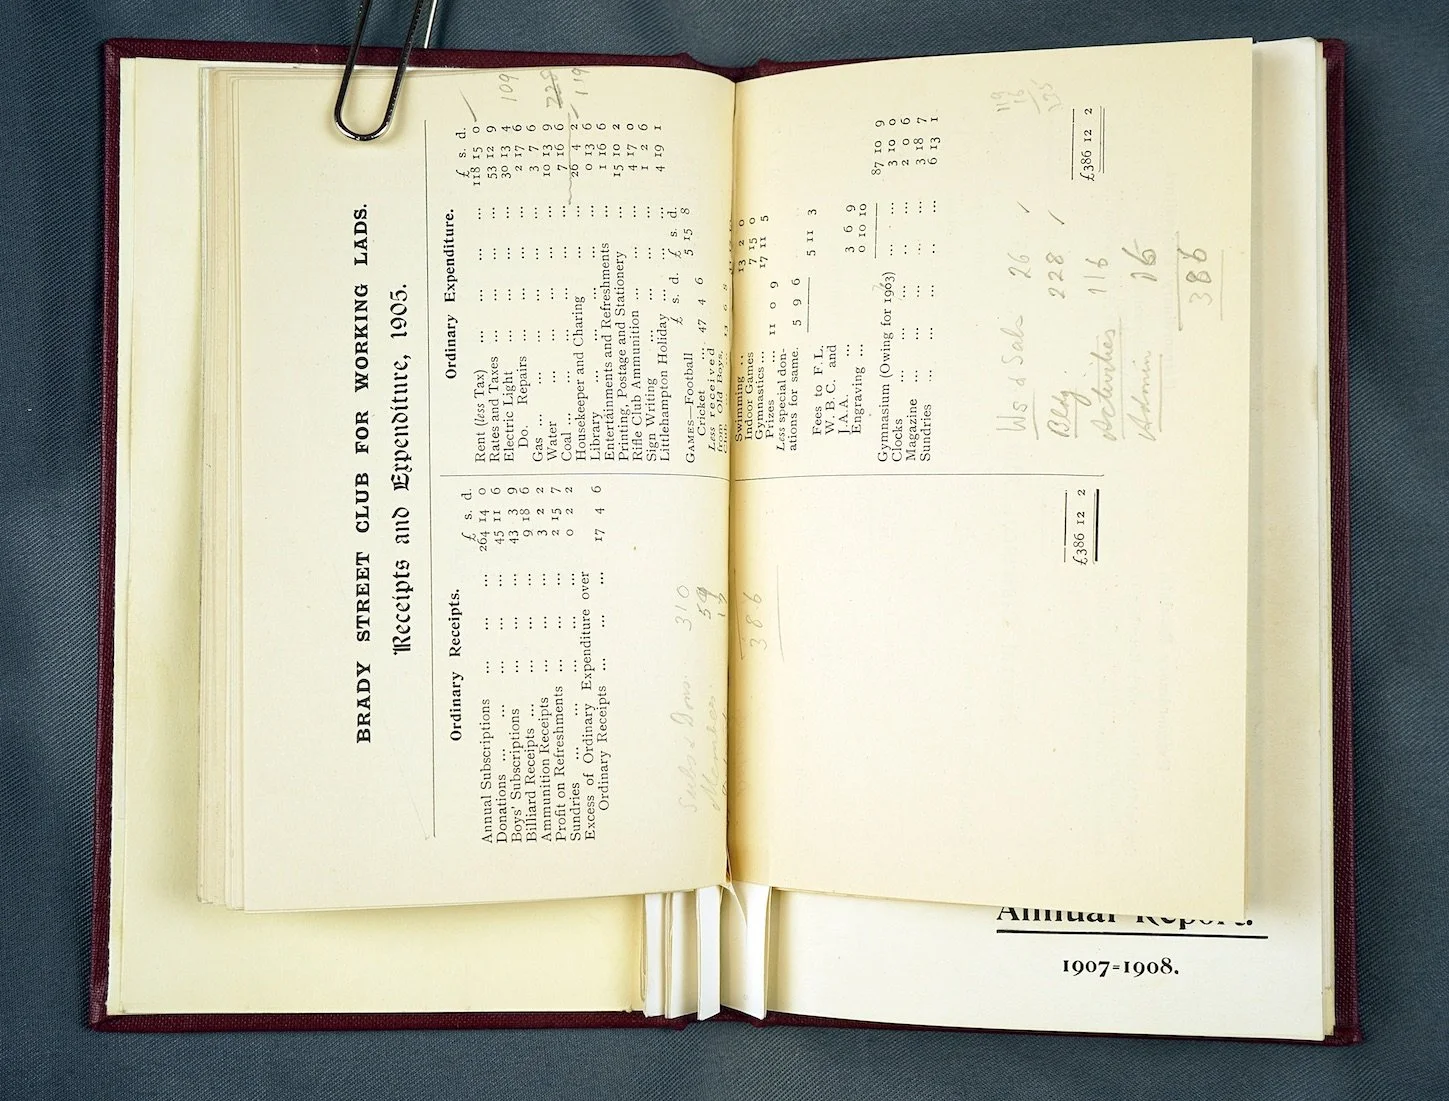 BRADY STREET CLUB FOR WORKING LADS.
Receipts and Expenditure, 1905.
Ordinary Receipts.
£ s. d.
Annual Subscriptions ... ... 264 14 0
Donations ... ... ... ... 45 11 6
Boys' Subscriptions ... ... ... 43 3 9
Billiard Receipts ... ... ... ... 9 18 6
Ammunition Receipts ... ... ... 3 2 2
Profit on Refreshments ... ... ... 2 15 7
Sundries ... ... ... ... ... 0 2 2
Excess of Ordinary Expenditure over
Ordinary Receipts ... ... ... 17 4 6
£386 12 2
Ordinary Expenditure.
£ s. d.
Rent (less Tax) ... ... ... 118 15 0
Rates and Taxes ... ... ... 53 12 9
Electric Light ... ... ... 30 13 4
Do. Repairs ... ... ... 2 17 6
Gas ... ... ... ... ... 3 7 6
Water ... ... ... ... 10 13 9
Coal ... ... ... ... ... 7 16 6
Housekeeper and Charing ... ... 26 4 2
Library ... ... ... ... 0 13 6
Entertainments and Refreshments ... 1 16 6
Printing, Postage and Stationery ... 15 10 2
Rifle Club Ammunition ... ... ... 4 17 0
Sign Writing ... ... ... 1 2 6
Littlehampton Holiday ... ... ... 4 19 1
£ s. d. £ s. d.
GAMES—Football 5 15 8
Cricket ... 47 4 6
Less received
from Old Boys' 13 6 8
Swimming ... 13 2 0
Indoor Games 7 15 0
Gymnastics ... 17 11 5
Prizes ... 11 0 9
Less special don-
ations for same. 5 9 6
5 11 3
Fees to F.L.
W. B. C. and
J.A.A. ... 3 6 9
Engraving ... 0 10 10
87 10 9
Gymnasium (Owing for 1903) ... ... 3 10 0
Clocks ... ... ... ... ... 2 0 6
Magazine ... ... ... ... 3 18 7
Sundries ... ... ... ... 6 13 1
£386 12 2
109
228
119
Subs & Dons. 310
59
17
386
119
16
Ws & Sals 26
Bldg 228
Activities 116
Admin 16
386
Annual Report.
1907=1908.